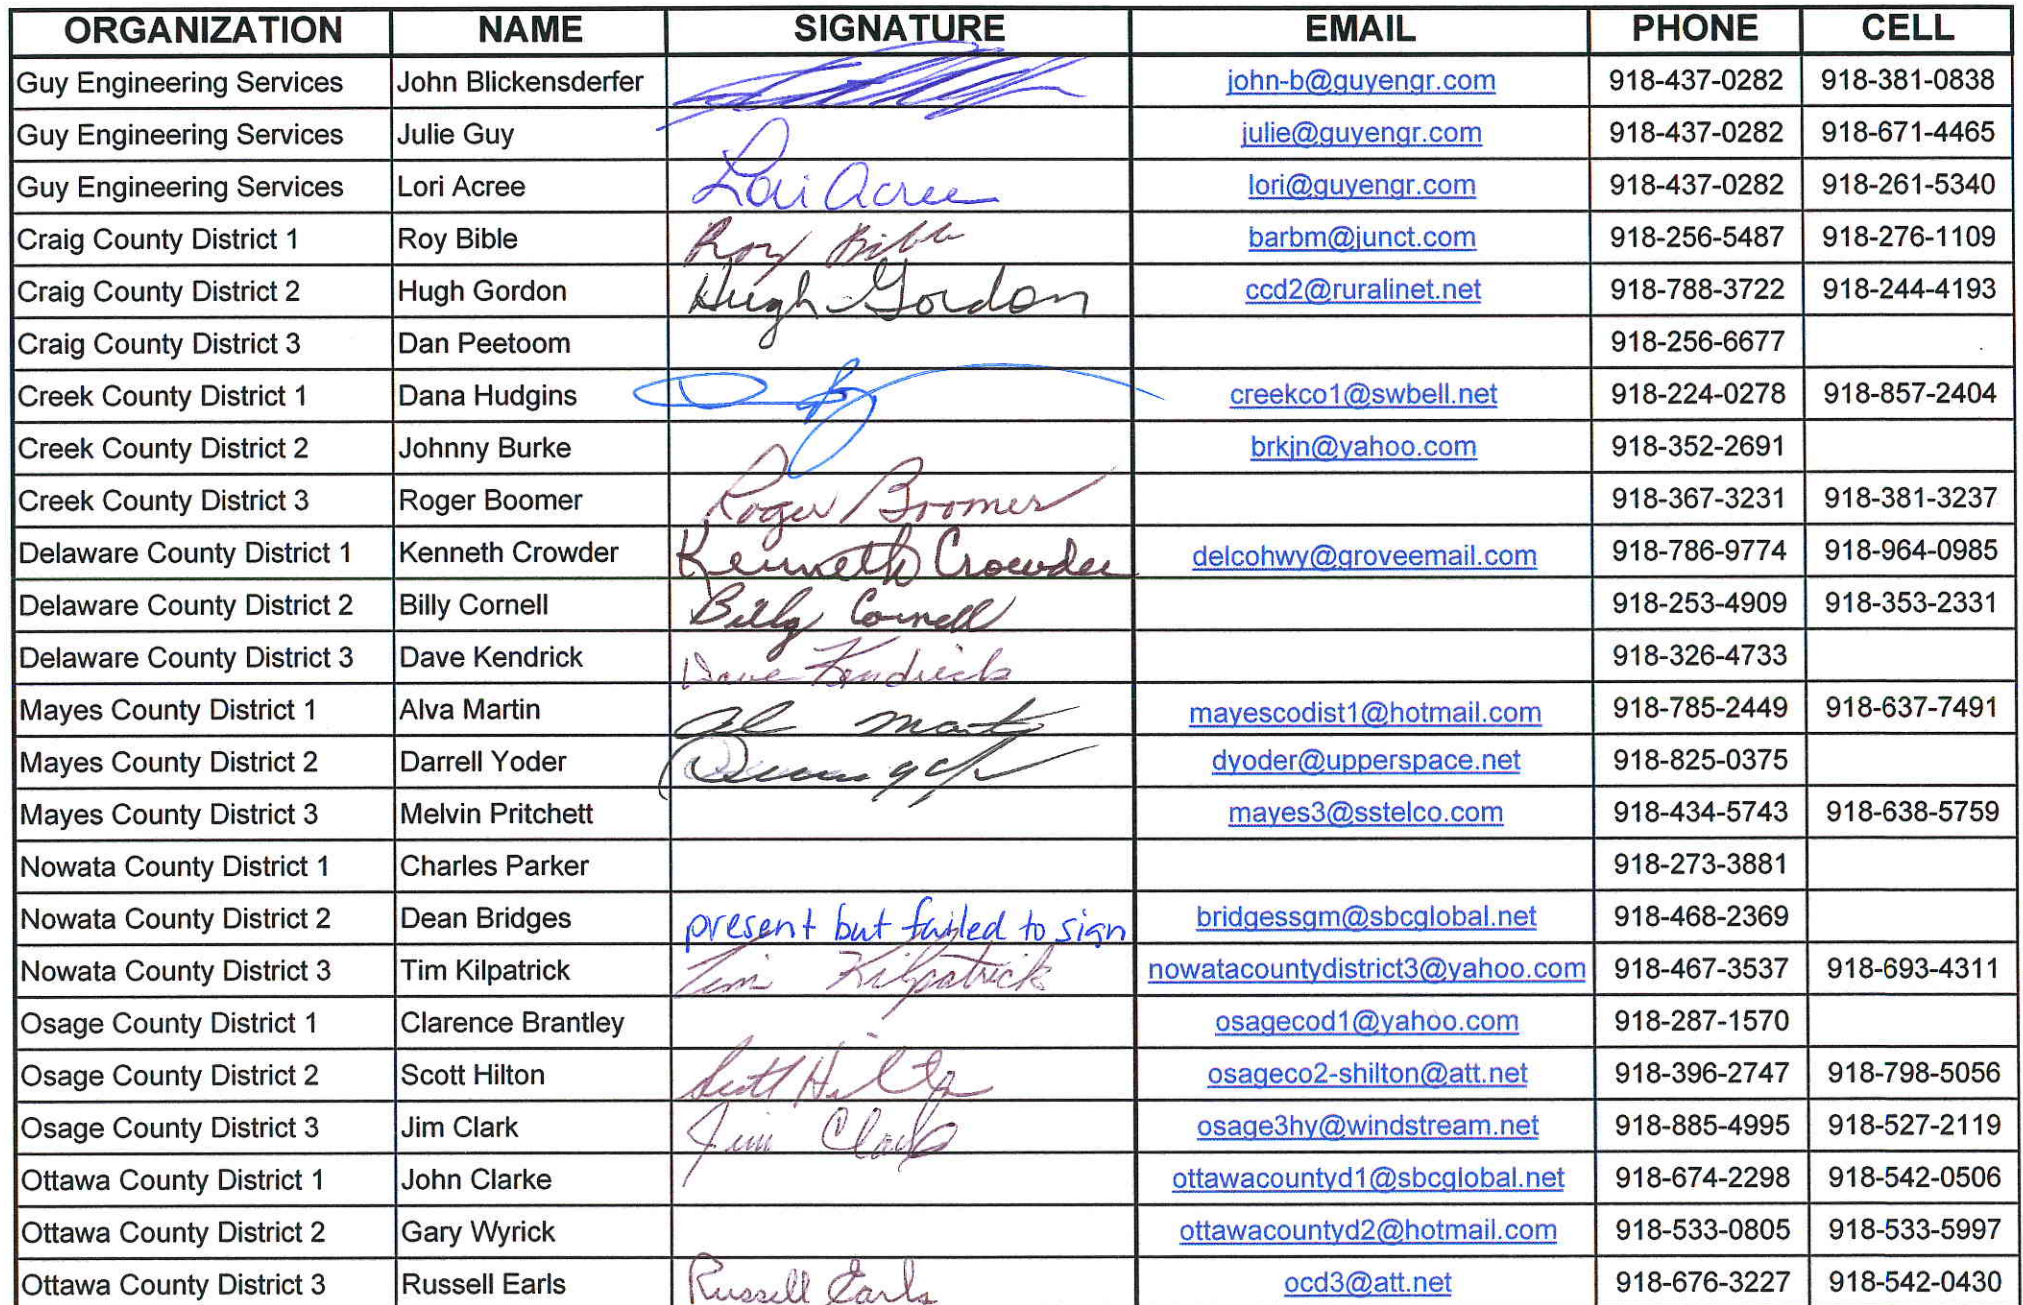 ORGANIZATION NAME SIGNATURE EMAIL PHONE CELL
Guy Engineering Services John Blickensderfer john-b@guyengr.com 918-437-0282 918-381-0838
Guy Engineering Services Julie Guy julie@guyengr.com 918-437-0282 918-671-4465
Guy Engineering Services Lori Acree Lori Acree lori@guyengr.com 918-437-0282 918-261-5340
Craig County District 1 Roy Bible Roy Bible barbm@junct.com 918-256-5487 918-276-1109
Craig County District 2 Hugh Gordon Hugh Gordon ccd2@ruralinet.net 918-788-3722 918-244-4193
Craig County District 3 Dan Peetoom 918-256-6677
Creek County District 1 Dana Hudgins creekco1@swbell.net 918-224-0278 918-857-2404
Creek County District 2 Johnny Burke brkjn@yahoo.com 918-352-2691
Creek County District 3 Roger Boomer Roger Boomer 918-367-3231 918-381-3237
Delaware County District 1 Kenneth Crowder Kenneth Crowder delcohwy@groveemail.com 918-786-9774 918-964-0985
Delaware County District 2 Billy Cornell Billy Cornell 918-253-4909 918-353-2331
Delaware County District 3 Dave Kendrick Dave Kendrick 918-326-4733
Mayes County District 1 Alva Martin Al Martin mayescodist1@hotmail.com 918-785-2449 918-637-7491
Mayes County District 2 Darrell Yoder dyoder@upperspace.net 918-825-0375
Mayes County District 3 Melvin Pritchett mayes3@sstelco.com 918-434-5743 918-638-5759
Nowata County District 1 Charles Parker 918-273-3881
Nowata County District 2 Dean Bridges present but failed to sign bridgessgm@sbcglobal.net 918-468-2369
Nowata County District 3 Tim Kilpatrick Tim Kilpatrick nowatacountydistrict3@yahoo.com 918-467-3537 918-693-4311
Osage County District 1 Clarence Brantley osagecod1@yahoo.com 918-287-1570
Osage County District 2 Scott Hilton Scott Hilton osageco2-shilton@att.net 918-396-2747 918-798-5056
Osage County District 3 Jim Clark Jim Clark osage3hy@windstream.net 918-885-4995 918-527-2119
Ottawa County District 1 John Clarke ottawacountyd1@sbcglobal.net 918-674-2298 918-542-0506
Ottawa County District 2 Gary Wyrick ottawacountyd2@hotmail.com 918-533-0805 918-533-5997
Ottawa County District 3 Russell Earls Russell Earls ocd3@att.net 918-676-3227 918-542-0430